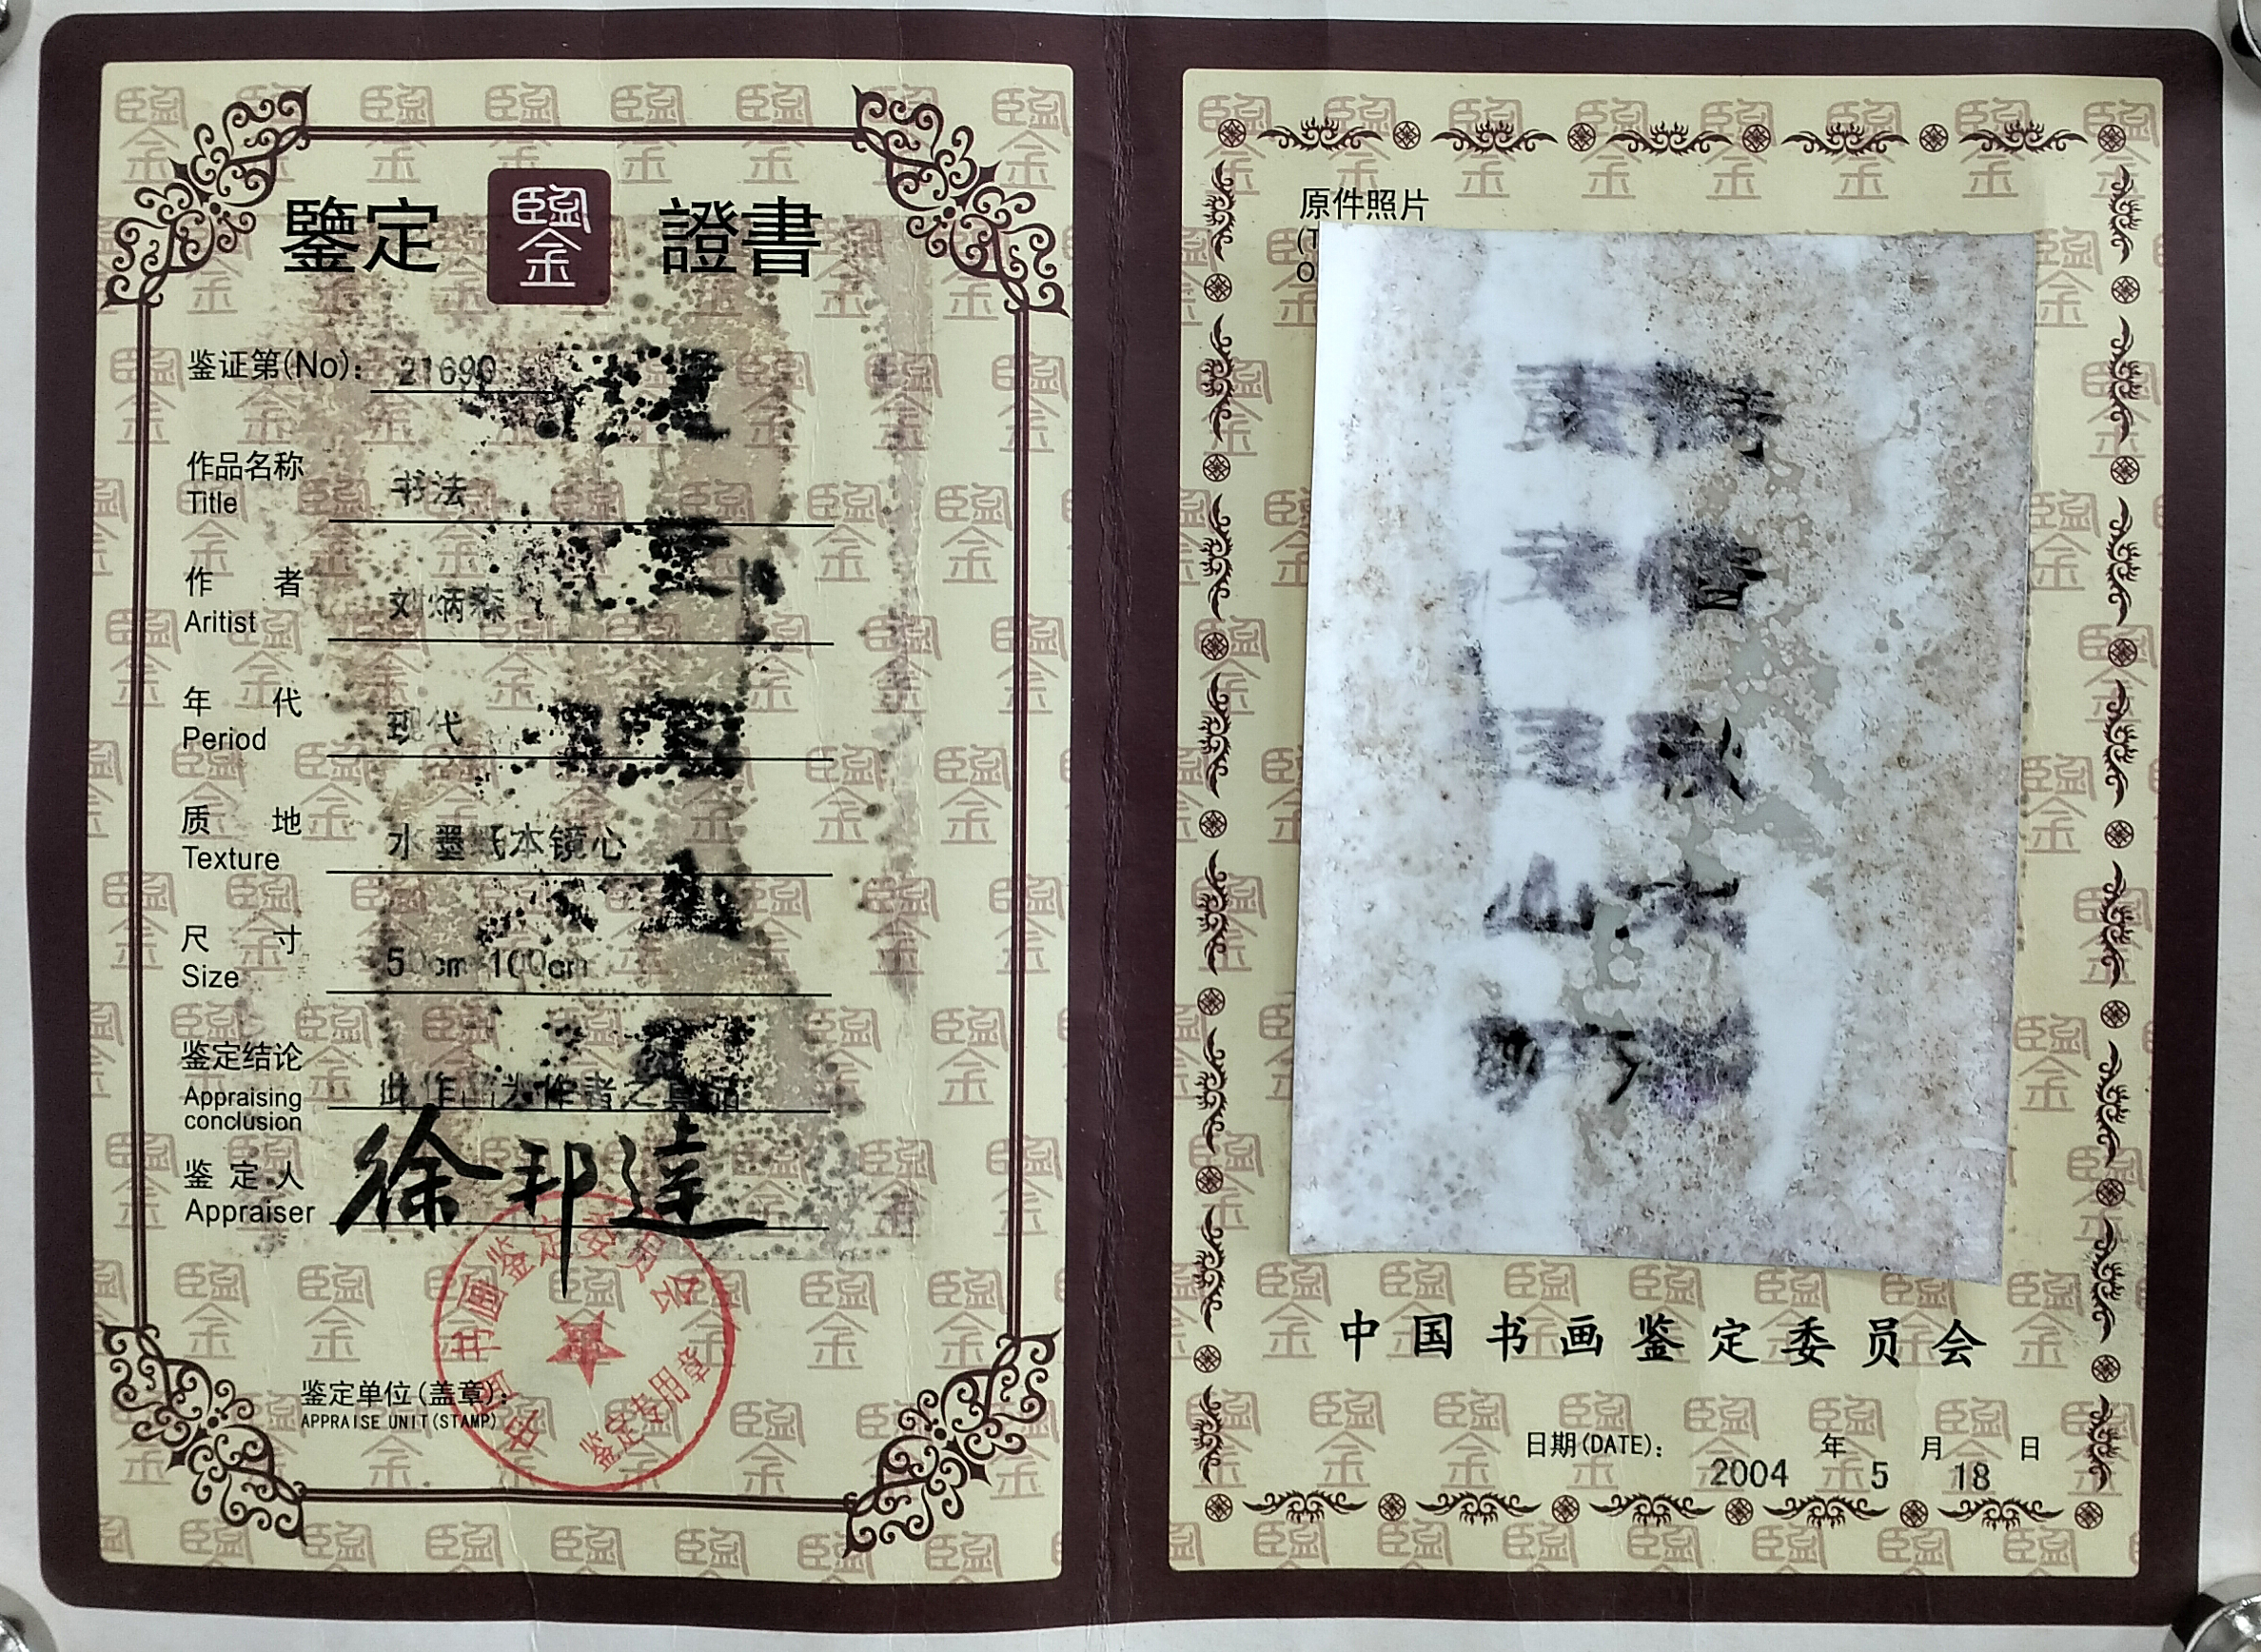 鑒定 鑒 證書
鉴证第(No)： 21690
作品名称 书法
Title
作者 刘炳森
Aritist
年代 现代
Period
质地 水墨纸本镜心
Texture
尺寸 50cm 100cm
Size
鉴定结论 此作品为作者之真品
Appraising
conclusion
鉴定人 徐邦達
Appraiser
中国书画鉴定委员会
鉴定专用章
鉴定单位(盖章)：
APPRAISE UNIT(STAMP)
原件照片
(T
O
中国书画鉴定委员会
日期(DATE)： 2004 年 5 月 18 日